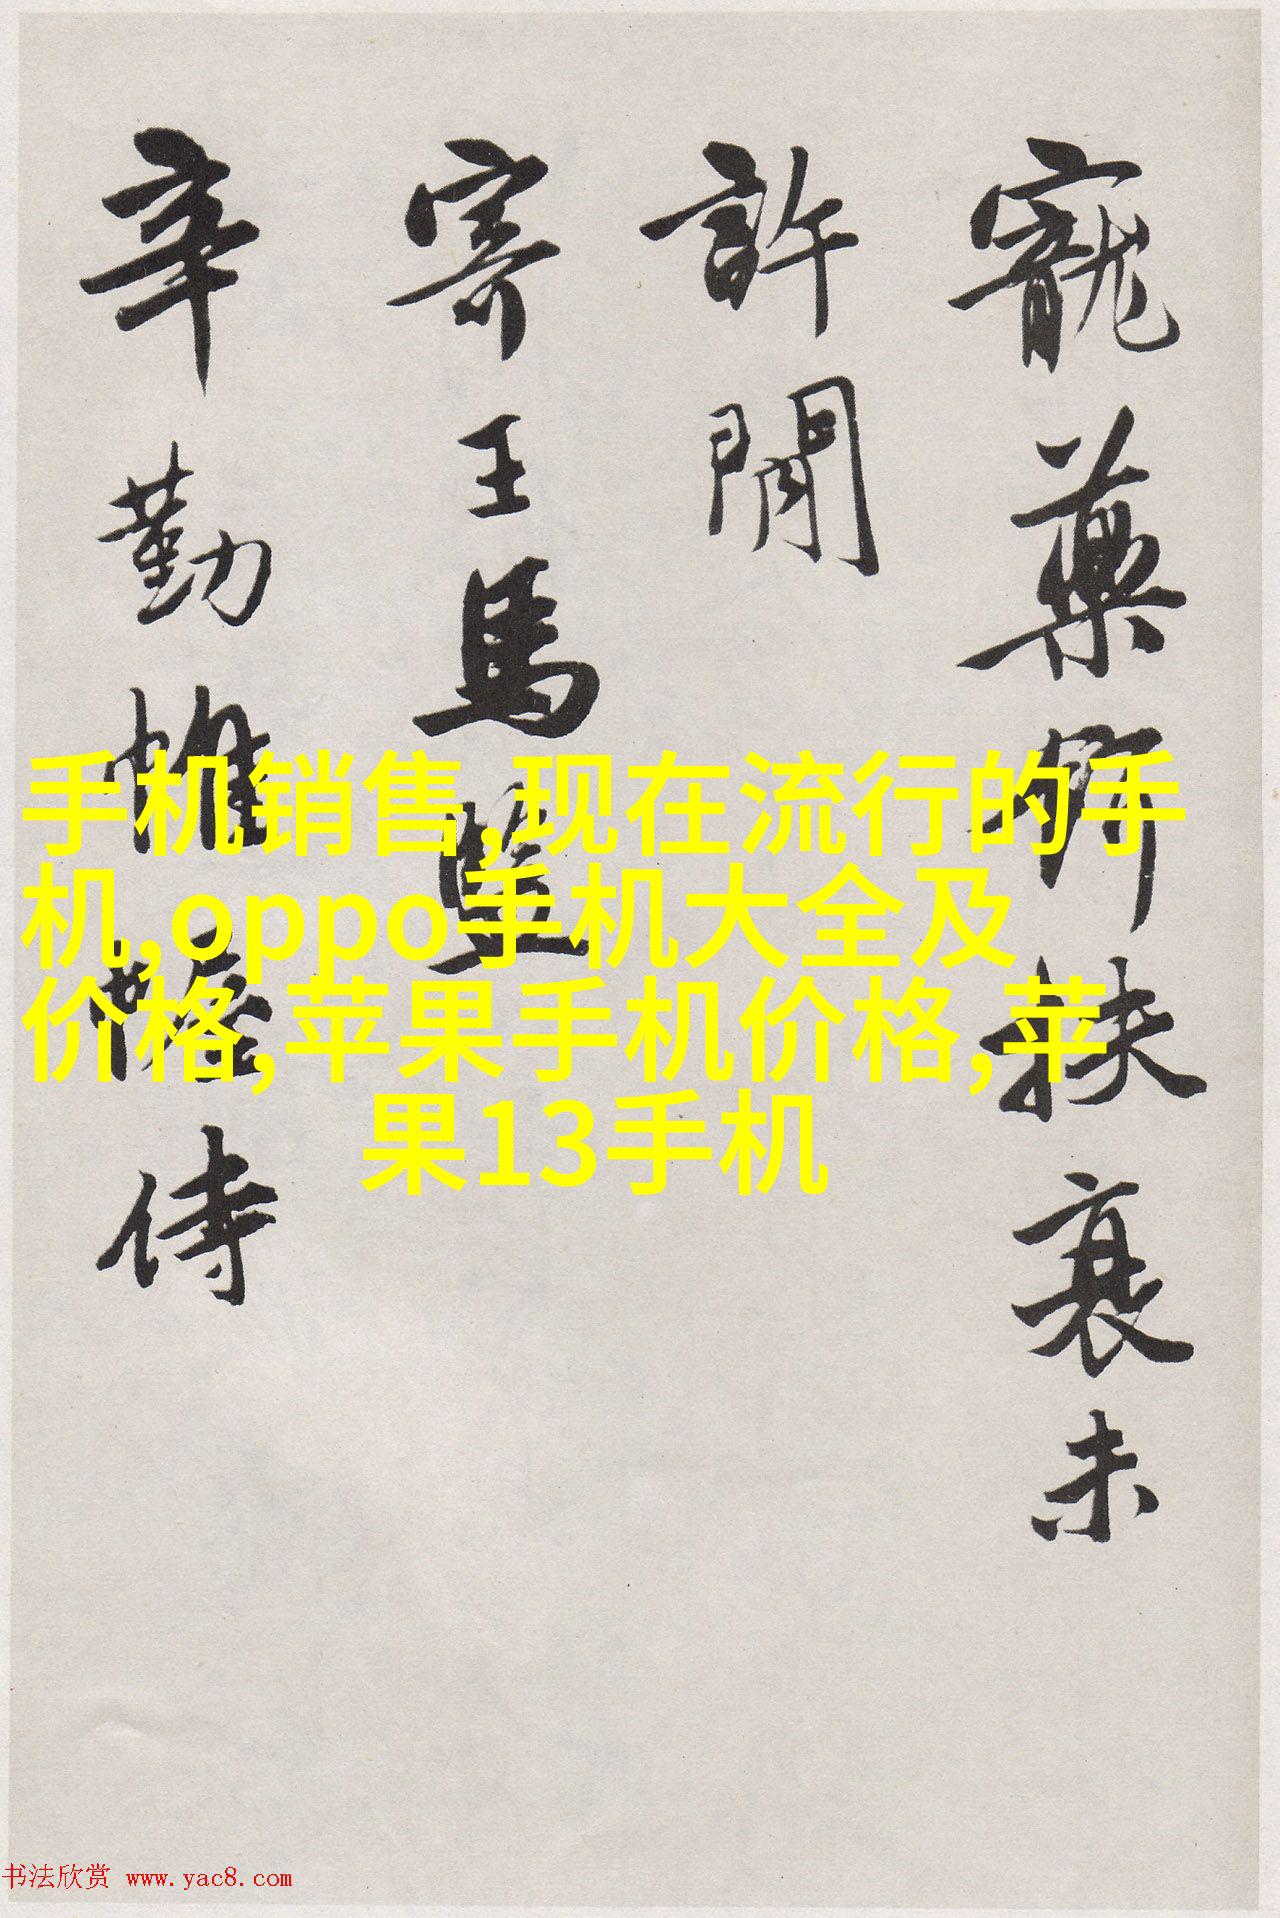 寵藥餌扶衰未
許閒
寄王馬監
辛勤帷幄侍
手机销售,现在流行的手
机,oppo手机大全及
价格,苹果手机价格,苹
果13手机
书法欣赏 www.yac8.com